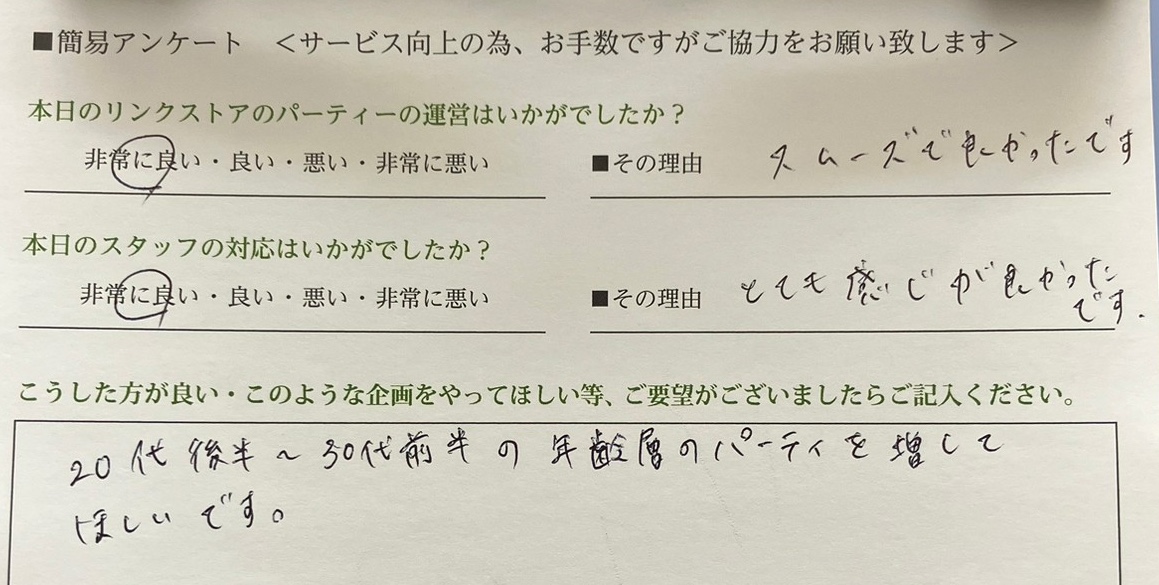 ■簡易アンケート ＜サービス向上の為、お手数ですがご協力をお願い致します＞
本日のリンクストアのパーティーの運営はいかがでしたか？
非常に良い・良い・悪い・非常に悪い ■その理由 スムーズで良かったです
本日のスタッフの対応はいかがでしたか？
非常に良い・良い・悪い・非常に悪い ■その理由 とても感じが良かった
です.
こうした方が良い・このような企画をやってほしい等、ご要望がございましたらご記入ください。
20代後半～30代前半の年齢層のパーティを増して
ほしいです。